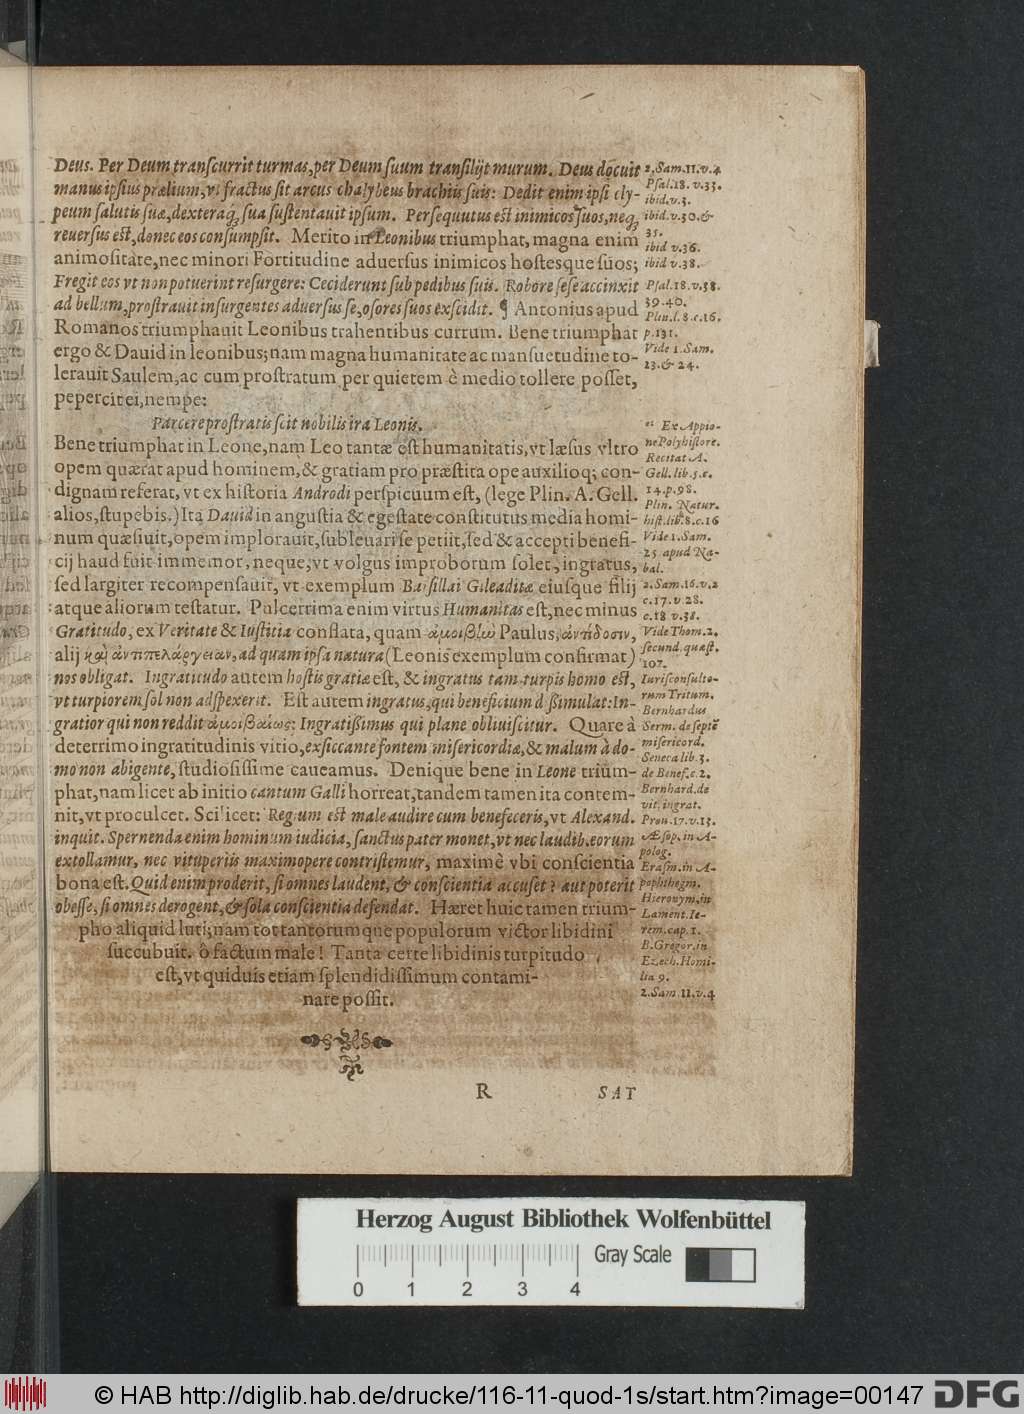 Deus. Per Deum tranſcurrit turmas, per Deum ſuum tranſilijt murum. Deus docuit
manus ipſius prælium, vt fractus ſit arcus chalybeus brachiis ſuis: Dedit enim ipſi cly-
peum ſalutis ſuæ, dexteraq; ſua ſuſtentauit ipſum. Perſequutus eſt inimicos ſuos, neq;
reuerſus eſt, donec eos conſumpſit. Merito in Leonibus triumphat, magna enim
animoſitate, nec minori Fortitudine aduerſus inimicos hoſtesque ſuos;
Fregit eos vt non potuerint reſurgere: Ceciderunt ſub pedibus ſuis. Robore ſeſe accinxit
ad bellum, proſtrauit inſurgentes aduerſus ſe, oſores ſuos exſcidit. ¶ Antonius apud
Romanos triumphauit Leonibus trahentibus currum. Bene triumphat
ergo & Dauid in leonibus; nam magna humanitate ac manſuetudine to-
lerauit Saulem, ac cum proſtratum per quietem è medio tollere poſſet,
pepercit ei, nempe:
Parcere proſtratis ſcit nobilis ira Leonis.
Bene triumphat in Leone, nam Leo tantæ eſt humanitatis, vt læſus vltro
opem quærat apud hominem, & gratiam pro præſtita ope auxilioq; con-
dignam referat, vt ex hiſtoria Androdi perſpicuum eſt, (lege Plin. A. Gell.
alios, ſtupebis.) Ita Dauid in anguſtia & egeſtate conſtitutus media homi-
num quæſiuit, opem implorauit, ſubleuari ſe petiit, ſed & accepti benefi-
cij haud fuit immemor, neque, vt volgus improborum ſolet, ingratus,
ſed largiter recompenſauit, vt exemplum Barſillai Gileaditæ eiuſque filij
atque aliorum teſtatur. Pulcerrima enim virtus Humanitas eſt, nec minus
Gratitudo, ex Veritate & Iuſtitia conflata, quam ἀμοιβὼ Paulus, ἀντίδοσιν,
alij καὶ ἀντιπελάργειαν, ad quam ipſa natura (Leonis exemplum confirmat)
nos obligat. Ingratitudo autem hoſtis gratiæ eſt, & ingratus tam turpis homo eſt,
vt turpiorem ſol non adſpexerit. Eſt autem ingratus, qui beneficium diſſimulat: In-
gratior qui non reddit ἀμοιβαίως: Ingratiſſimus qui plane obliuiſcitur. Quare à
deterrimo ingratitudinis vitio, exſiccante fontem miſericordiæ, & malum à do-
mo non abigente, ſtudioſiſſime caueamus. Denique bene in Leone trium-
phat, nam licet ab initio cantum Galli horreat, tandem tamen ita contem-
nit, vt proculcet. Scilicet: Regium eſt male audire cum benefeceris, vt Alexand.
inquit. Spernenda enim hominum iudicia, ſanctus pater monet, vt nec laudib. eorum
extollamur, nec vituperiis maximopere contriſtemur, maximè vbi conſcientia
bona eſt. Quid enim proderit, ſi omnes laudent, & conſcientia accuſet? aut poterit
obeſſe, ſi omnes derogent, & ſola conſcientia defendat. Hæret huic tamen trium-
pho aliquid luti; nam tot tantorumque populorum victor libidini
ſuccubuit. ô factum male! Tanta certe libidinis turpitudo
eſt, vt quiduis etiam ſplendidiſſimum contami-
nare poſſit.
R SAT
2. Sam. 11. v. 4
Pſal. 18. v. 33.
ibid. v. 3.
ibid. v. 30. &
35.
ibid v. 36.
ibid v. 38.
Pſal. 18. v. 38.
39. 40.
Plin. l. 8. c. 16.
p. 131.
Vide 1. Sam.
23. & 24.
Ex Appio-
ne Polyhiſtore.
Recitat A.
Gell. lib. 5. c.
14. p. 98.
Plin. Natur.
hiſt. lib. 8. c. 16
Vide 1. Sam.
25 apud Na-
bal.
2. Sam. 16. v. 2
c. 17. v 28.
c. 18 v. 38.
Vide Thom. 2.
ſecund. quæſt.
107.
Iurisconſulto-
rum Tritum.
Bernhardus
Serm. de ſeptē
miſericord.
Seneca lib. 3.
de Benef. c. 2.
Bernhard. de
vit. ingrat.
Prou. 17. v. 13.
Æſop. in A-
polog.
Eraſm. in A-
pophthegm.
Hieronym. in
Lament. Ie-
rem. cap. 1.
B. Gregor. in
Ezech. Homi-
lia 9.
2. Sam. 11. v. 4
Herzog August Bibliothek Wolfenbüttel
Gray Scale
0 1 2 3 4
© HAB http://diglib.hab.de/drucke/116-11-quod-1s/start.htm?image=00147
DFG